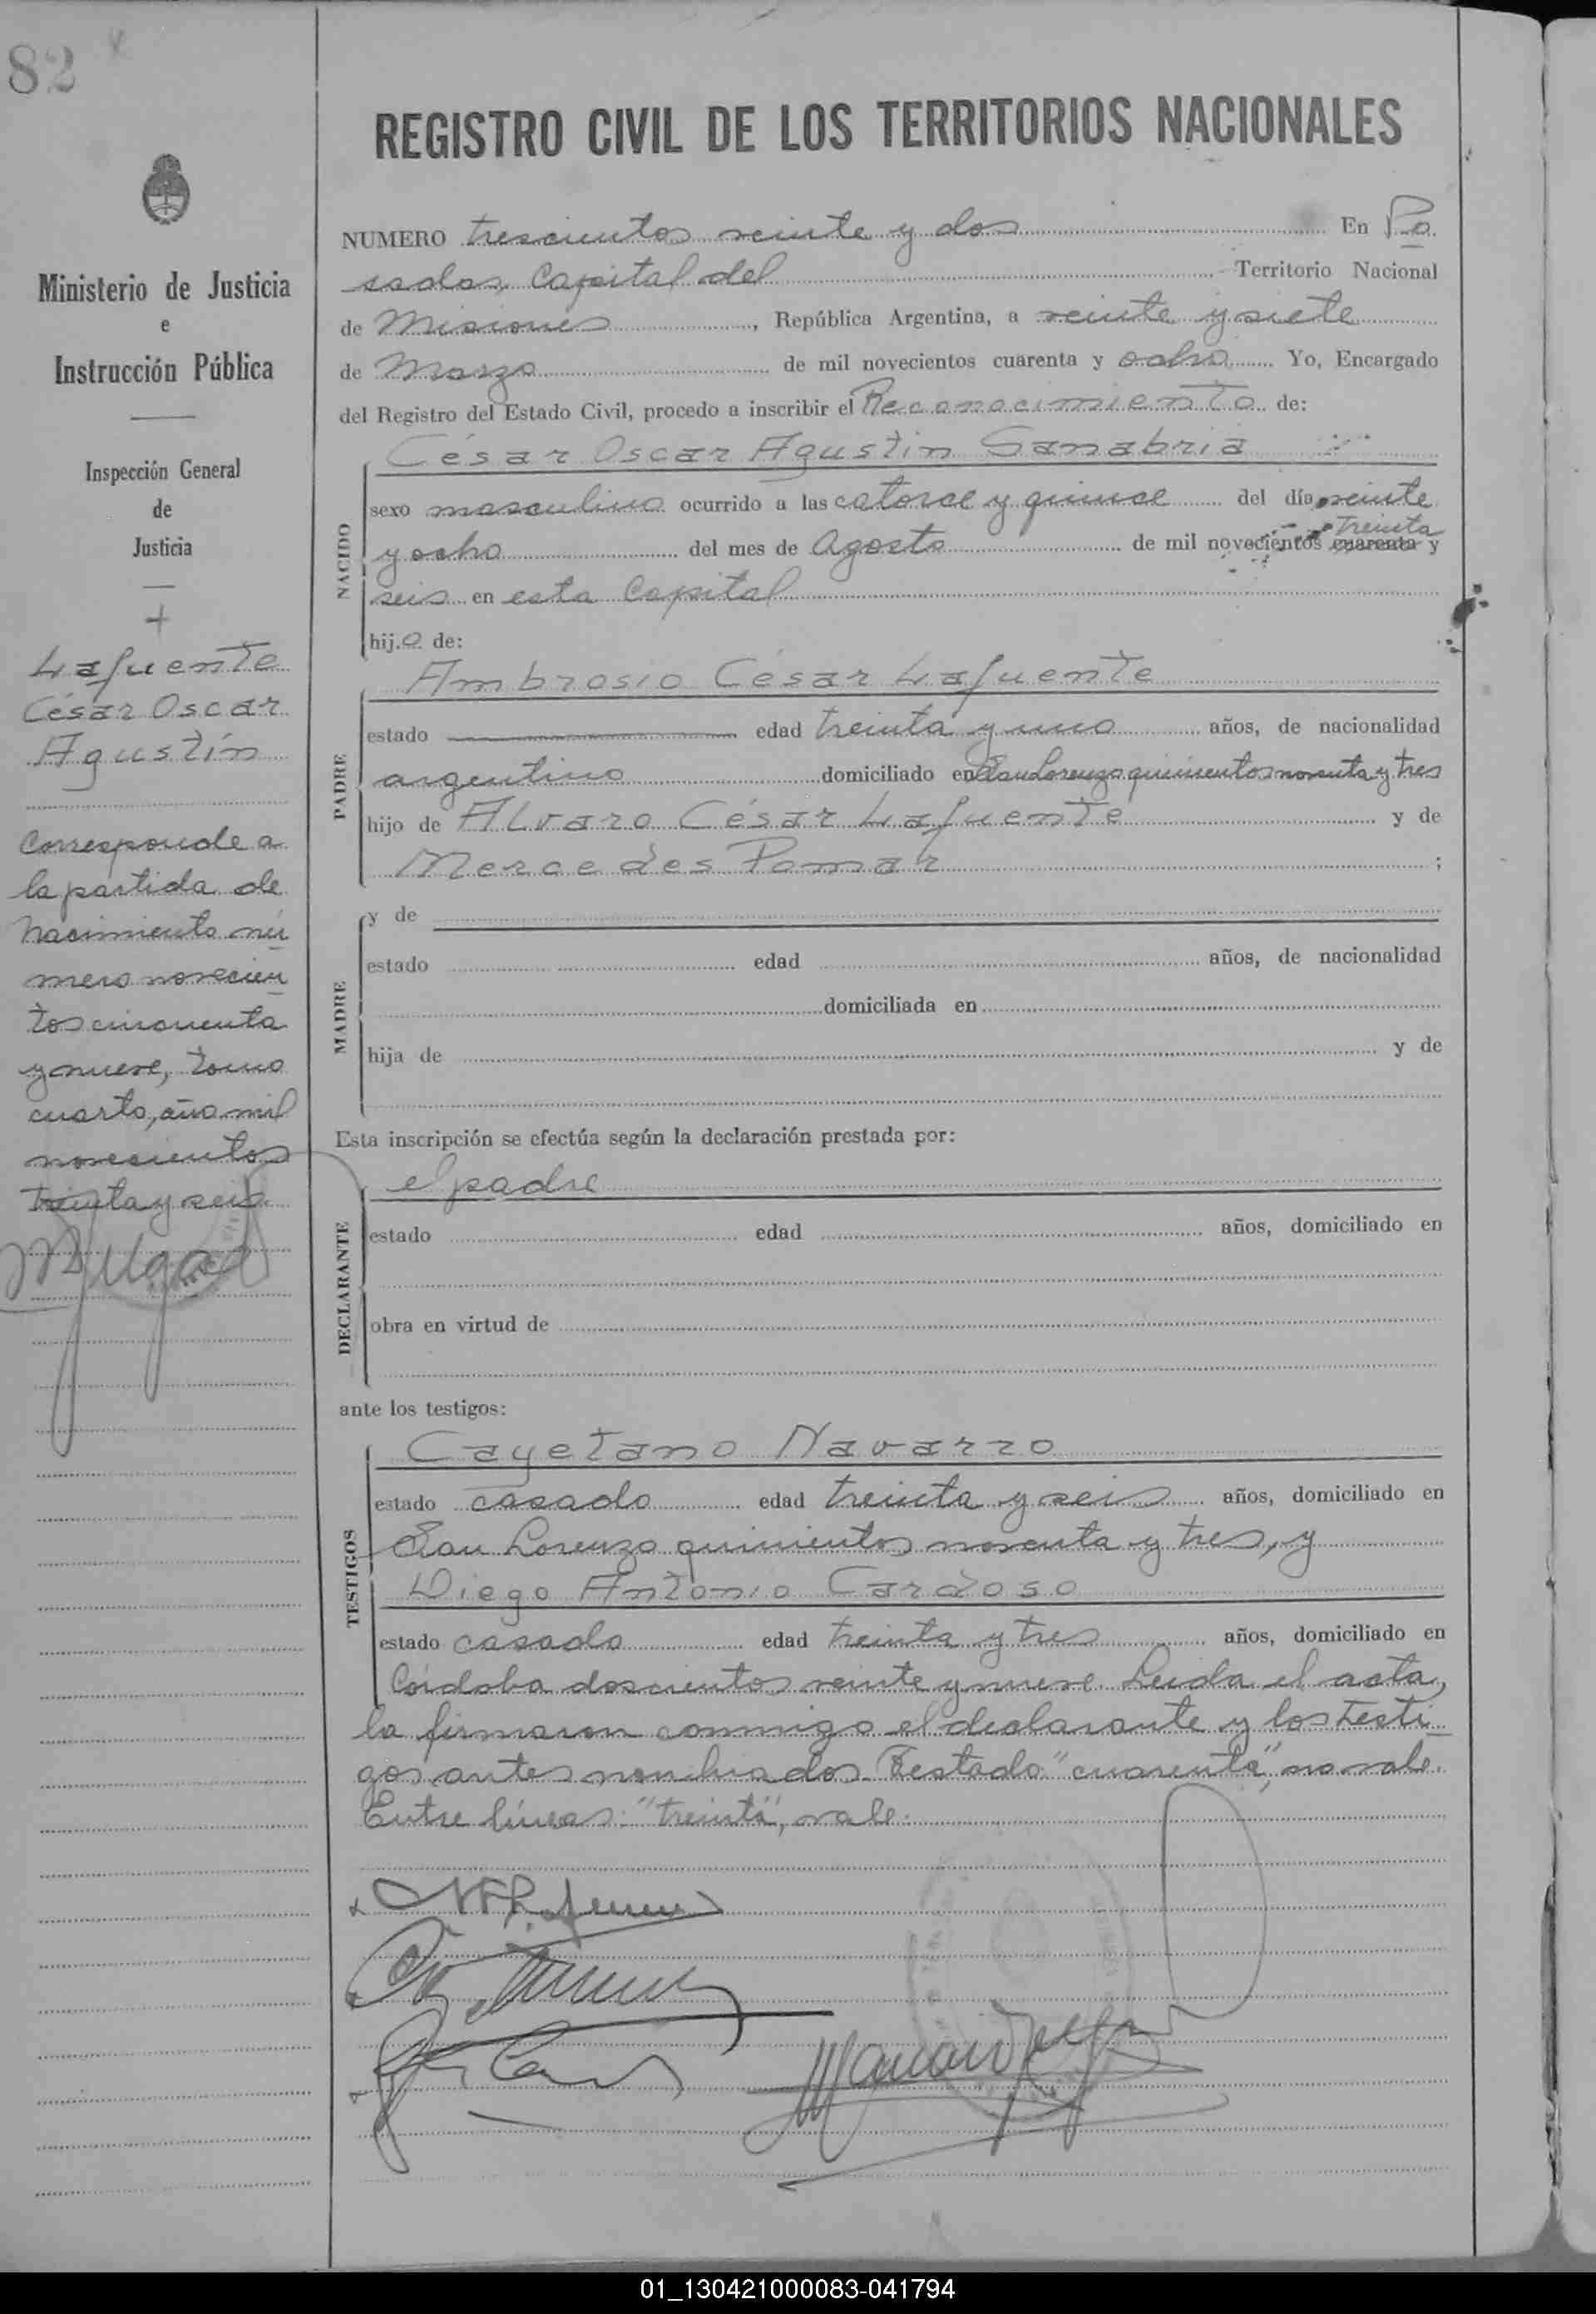 82
Ministerio de Justicia
e
Instrucción Pública
Inspección General
de
Justicia
Lafuente
César Oscar
Agustín
Corresponde a
la partida de
nacimiento nú
mero novecien
tos cincuenta
y nueve, tomo
cuarto, año mil
novecientos
treinta y seis.
REGISTRO CIVIL DE LOS TERRITORIOS NACIONALES
NUMERO trescientos veinte y dos En Po
sadas, Capital del Territorio Nacional
de Misiones, República Argentina, a veinte y siete
de Marzo de mil novecientos cuarenta y ocho Yo, Encargado
del Registro del Estado Civil, procedo a inscribir el Reconocimiento de:
César Oscar Agustín Sanabria
NACIDO
sexo masculino ocurrido a las catorce y quince del día veinte
treinta
y ocho del mes de Agosto de mil novecientos cuarenta y
seis en esta Capital
hijo de:
PADRE
Ambrosio César Lafuente
estado edad treinta y uno años, de nacionalidad
argentino domiciliado en San Lorenzo quinientos noventa y tres
hijo de Alvaro César Lafuente y de
Mercedes Pomar ;
MADRE
y de
estado edad años, de nacionalidad
domiciliada en
hija de y de
Esta inscripción se efectúa según la declaración prestada por:
DECLARANTE
el padre
estado edad años, domiciliado en
obra en virtud de
ante los testigos:
TESTIGOS
Cayetano Navarro
estado casado edad treinta y seis años, domiciliado en
San Lorenzo quinientos noventa y tres, y
Diego Antonio Cardoso
estado casado edad treinta y tres años, domiciliado en
Córdoba doscientos veinte y nueve. Leída el acta,
la firmaron conmigo el declarante y los testi
gos antes nombrados. Testado "cuarenta", no vale.
Entre líneas: "treinta", vale.
01_130421000083-041794